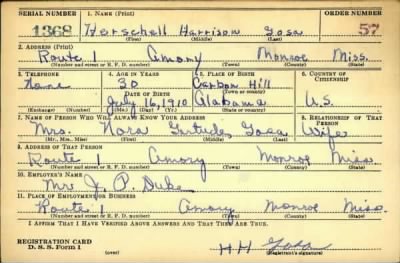 SERIAL NUMBER 1. NAME (Print) ORDER NUMBER
1368 Herschell Harrison Gosa 57
(First) (Middle) (Last)
2. ADDRESS (Print)
Route 1 Amory Monroe Miss.
(Number and street or R. F. D. number) (Town) (County) (State)
3. TELEPHONE 4. AGE IN YEARS 5. PLACE OF BIRTH 6. COUNTRY OF CITIZENSHIP
None 30 Carbon Hill
DATE OF BIRTH (Town or county)
July 16, 1910 Alabama U.S.
(Exchange) (Number) (Mo.) (Day) (Yr.) (State or country)
7. NAME OF PERSON WHO WILL ALWAYS KNOW YOUR ADDRESS 8. RELATIONSHIP OF THAT PERSON
Mrs. Nora Gertrude Gosa Wife
(Mr., Mrs., Miss) (First) (Middle) (Last)
9. ADDRESS OF THAT PERSON
Route 1 Amory Monroe Miss
(Number and street or R. F. D. number) (Town) (County) (State)
10. EMPLOYER'S NAME
Mr J. P. Duke
11. PLACE OF EMPLOYMENT OR BUSINESS
Route 1 Amory Monroe Miss.
(Number and street or R. F. D. number) (Town) (County) (State)
I AFFIRM THAT I HAVE VERIFIED ABOVE ANSWERS AND THAT THEY ARE TRUE.
REGISTRATION CARD
D. S. S. Form 1 (over) H H Gosa
(Registrant's signature)